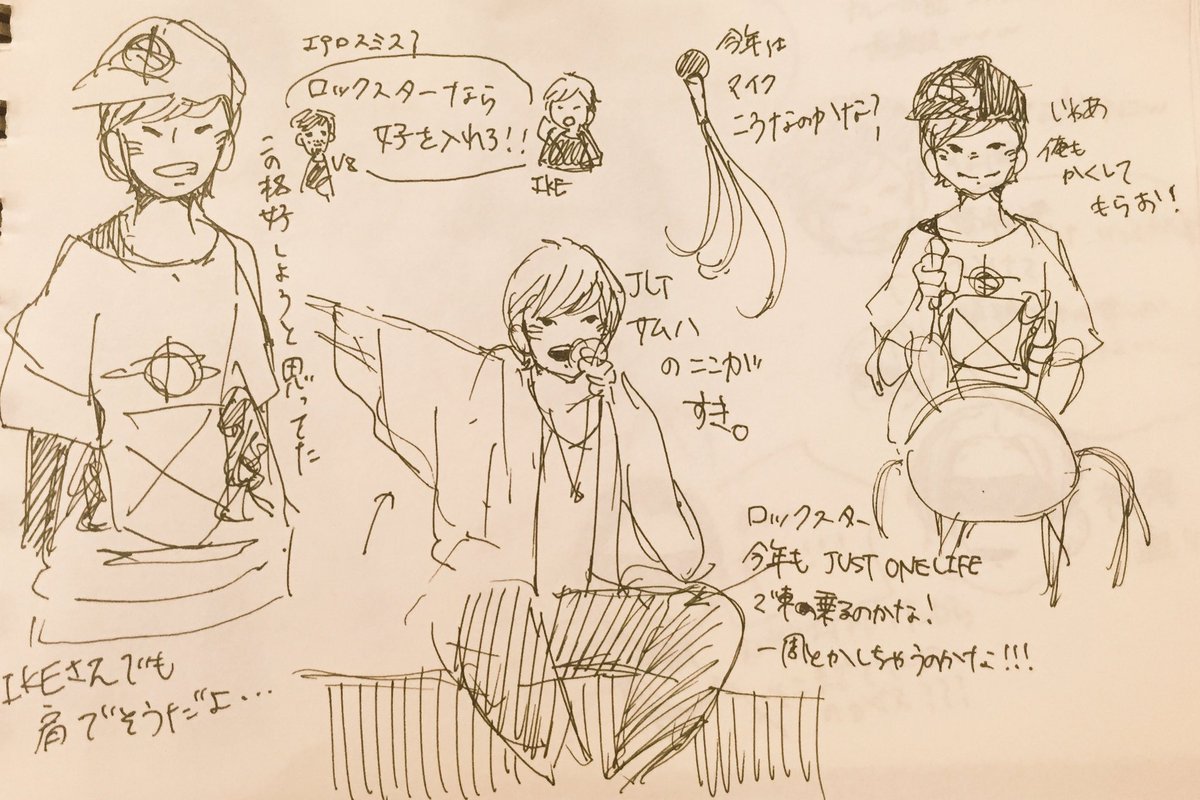 エアロスミス?
ロックスターなら
好を入れろ!!
V8
IKE
この格好しようと思ってた
今年は
マイク
ころなのかな?
じゃあ
俺も
かくして
もらお!
JLT
サムハ
のここが
すき。
ロックスター
今年も JUST ONE LIFE
で車乗るのかな!
一周とかしちゃうのかな!!!
IKEさんでも
肩でそうだよ...